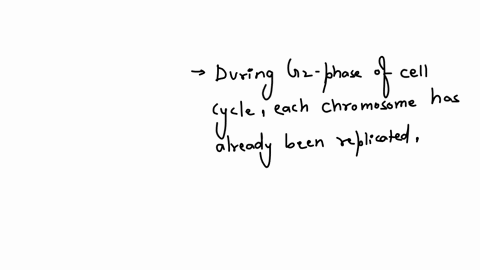 → During G2-phase of cell
cycle, each chromosome has
already been replicated.